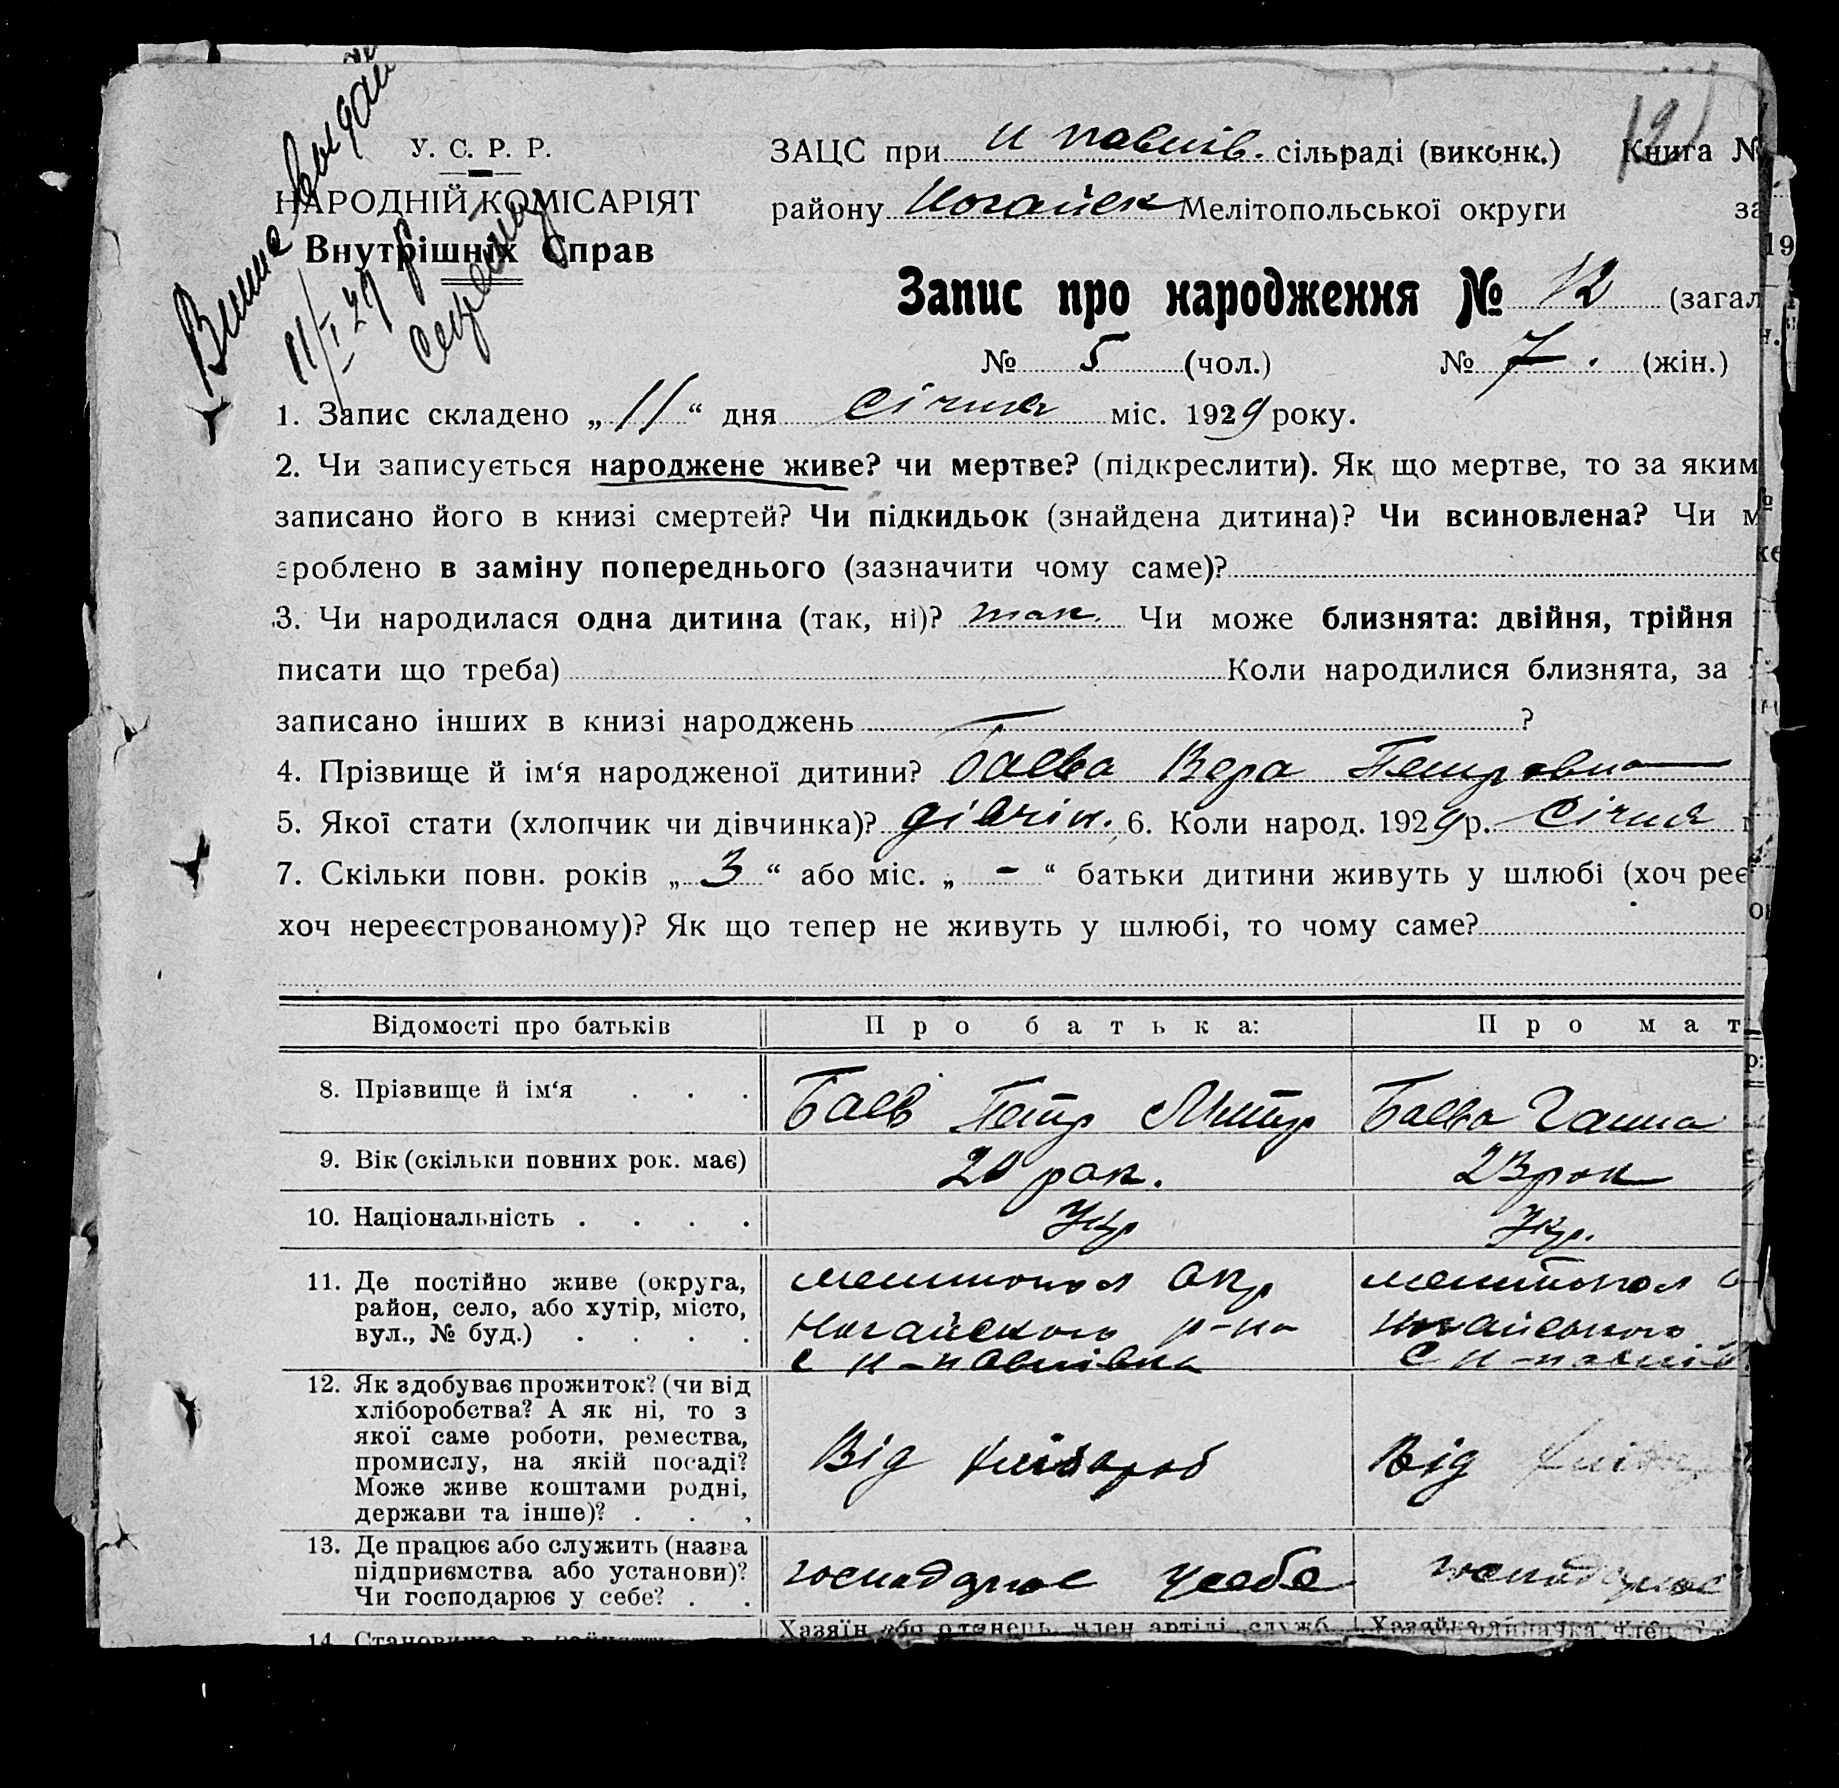 12
У. С. Р. Р.
НАРОДНІЙ КОМІСАРІЯТ
Внутрішніх Справ
11/I 29 р
ЗАЦС при Н павлів. сільраді (виконк.) Книга №
району Ногайськ Мелітопольської округи за
19
Запис про народження № 12 (загал
№ 5 (чол.) № 7. (жін.)
1. Запис складено „ 11 “ дня Січня міс. 1929 року.
2. Чи записується народжене живе? чи мертве? (підкреслити). Як що мертве, то за яким
записано його в книзі смертей? Чи підкидьок (знайдена дитина)? Чи всиновлена? Чи м
зроблено в заміну попереднього (зазначити чому саме)?
3. Чи народилася одна дитина (так, ні)? так. Чи може близнята: двійня, трійня
писати що треба) Коли народилися близнята, за
записано інших в книзі народжень ?
4. Прізвище й ім‘я народженої дитини? Баева Вера Петровна
5. Якої стати (хлопчик чи дівчинка)? дівчін. 6. Коли народ. 1929 р. Січня
7. Скільки повн. років „ 3 “ або міс. „ - “ батьки дитини живуть у шлюбі (хоч реє
хоч нереєстрованому)? Як що тепер не живуть у шлюбі, то чому саме?
Відомості про батьків Про батька: Про мат
8. Прізвище й ім‘я Баев Петр Митр Баева Ганна
9. Вік (скільки повних рок. має) 20 рок. 23 рок
10. Національність Укр Укр.
11. Де постійно живе (округа, район, село, або хутір, місто, вул., № буд.)
мелитопол окр мелитопол о
Ногайского р-на Ногайского
с Н-павлівка с Н-павлів
12. Як здобуває прожиток? (чи від
хліборобства? А як ні, то з
якої саме роботи, ремества,
промислу, на якій посаді?
Може живе коштами родні,
держави та інше)?
Від хлібороб Від
13. Де працює або служить (назва
підприємства або установи)?
Чи господарює у себе?
господарює у себе господарює
14. Становище в
Хазяїн або одинець, член артілі, служб. Хазяйка одиначка, член